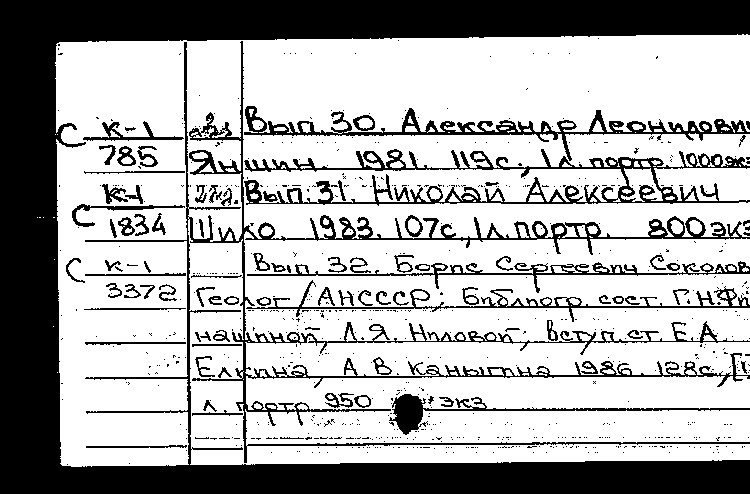 С К-1 Вып. 30. Александр Леонидови
785 Яншин. 1981. 119с., 1 л. портр. 1000экз
К-1 2 экз. Вып. 31. Николай Алексеевич
С 1834 Шило. 1983. 107с., 1 л. портр. 800 экз
С К-1 Вып. 32. Борис Сергеевич Соколов
3372 Геолог /АНСССР; Библиогр. сост. Г.Н.Фи
нашиной, Л.Я. Ниловой; Вступ. ст. Е.А.
Елкина, А.В. Каныгина 1986. 128с., [1]
л. портр. 950 экз.